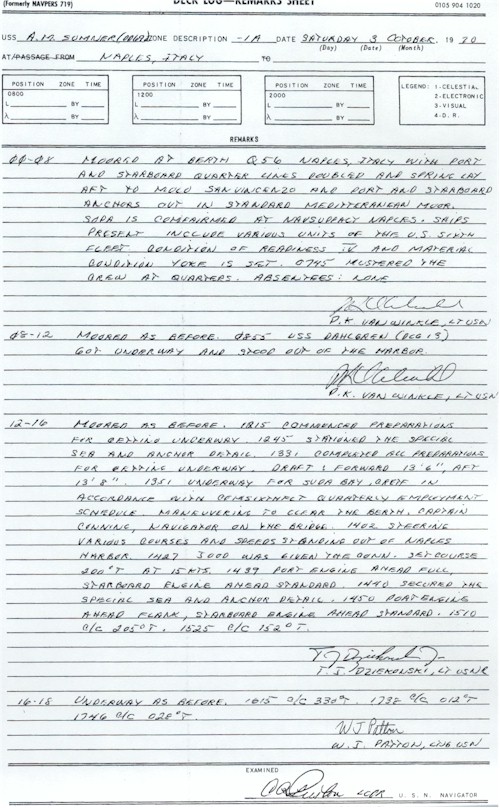 DECK LOG—REMARKS SHEET
(Formerly NAVPERS 719)
0105 904 1020
USS A.M. SUMNER (DD692) ZONE DESCRIPTION -1A DATE SATURDAY 3 OCTOBER 19 70
(Day) (Date) (Month)
AT/PASSAGE FROM NAPLES, ITALY TO
POSITION ZONE TIME
0800
L BY
λ BY
POSITION ZONE TIME
1200
L BY
λ BY
POSITION ZONE TIME
2000
L BY
λ BY
LEGEND: 1-CELESTIAL
2-ELECTRONIC
3-VISUAL
4-D. R.
REMARKS
00-08 MOORED AT BERTH Q56 NAPLES, ITALY WITH PORT
AND STARBOARD QUARTER LINES DOUBLED AND SPRING LAY
AFT TO MOLO SAN VINCENZO AND PORT AND STARBOARD
ANCHORS OUT IN STANDARD MEDITERRANEAN MOOR.
SOPA IS AT NAVSUPPACT NAPLES. SHIPS
PRESENT INCLUDE VARIOUS UNITS OF THE U.S. SIXTH
FLEET. CONDITION OF READINESS IV AND MATERIAL
CONDITION YOKE IS SET. 0745 MUSTERED THE
CREW AT QUARTERS. ABSENTEES: NONE
P.K. VAN WINKLE, LT USN
08-12 MOORED AS BEFORE. 0855 USS DAHLGREN (DLG 12)
GOT UNDERWAY AND STOOD OUT OF THE HARBOR.
P.K. VAN WINKLE, LT USN
12-16 MOORED AS BEFORE. 1215 COMMENCED PREPARATIONS
FOR GETTING UNDERWAY. 1245 STATIONED THE SPECIAL
SEA AND ANCHOR DETAIL. 1331 COMPLETED ALL PREPARATIONS
FOR GETTING UNDERWAY. DRAFT: FORWARD 13'6", AFT
13'8". 1351 UNDERWAY FOR SUDA BAY, CRETE IN
ACCORDANCE WITH COMSIXTHFLT QUARTERLY EMPLOYMENT
SCHEDULE. MANEUVERING TO CLEAR THE BERTH. CAPTAIN
CONNING, NAVIGATOR ON THE BRIDGE. 1402 STEERING
VARIOUS COURSES AND SPEEDS STANDING OUT OF NAPLES
HARBOR. 1427 JOOD WAS GIVEN THE CONN. SET COURSE
200°T AT 15 KTS. 1439 PORT ENGINE AHEAD FULL,
STARBOARD ENGINE AHEAD STANDARD. 1440 SECURED THE
SPECIAL SEA AND ANCHOR DETAIL. 1450 PORT ENGINE
AHEAD FLANK, STARBOARD ENGINE AHEAD STANDARD. 1510
C/C 205°T. 1525 C/C 152°T.
T. J. DZIEKONSKI, LT USNR
16-18 UNDERWAY AS BEFORE. 1615 C/C 330°T. 1738 C/C 012°T
1746 C/C 028°T.
W J Patton
W. J. PATTON, USN
EXAMINED
LCDR U. S. N. NAVIGATOR